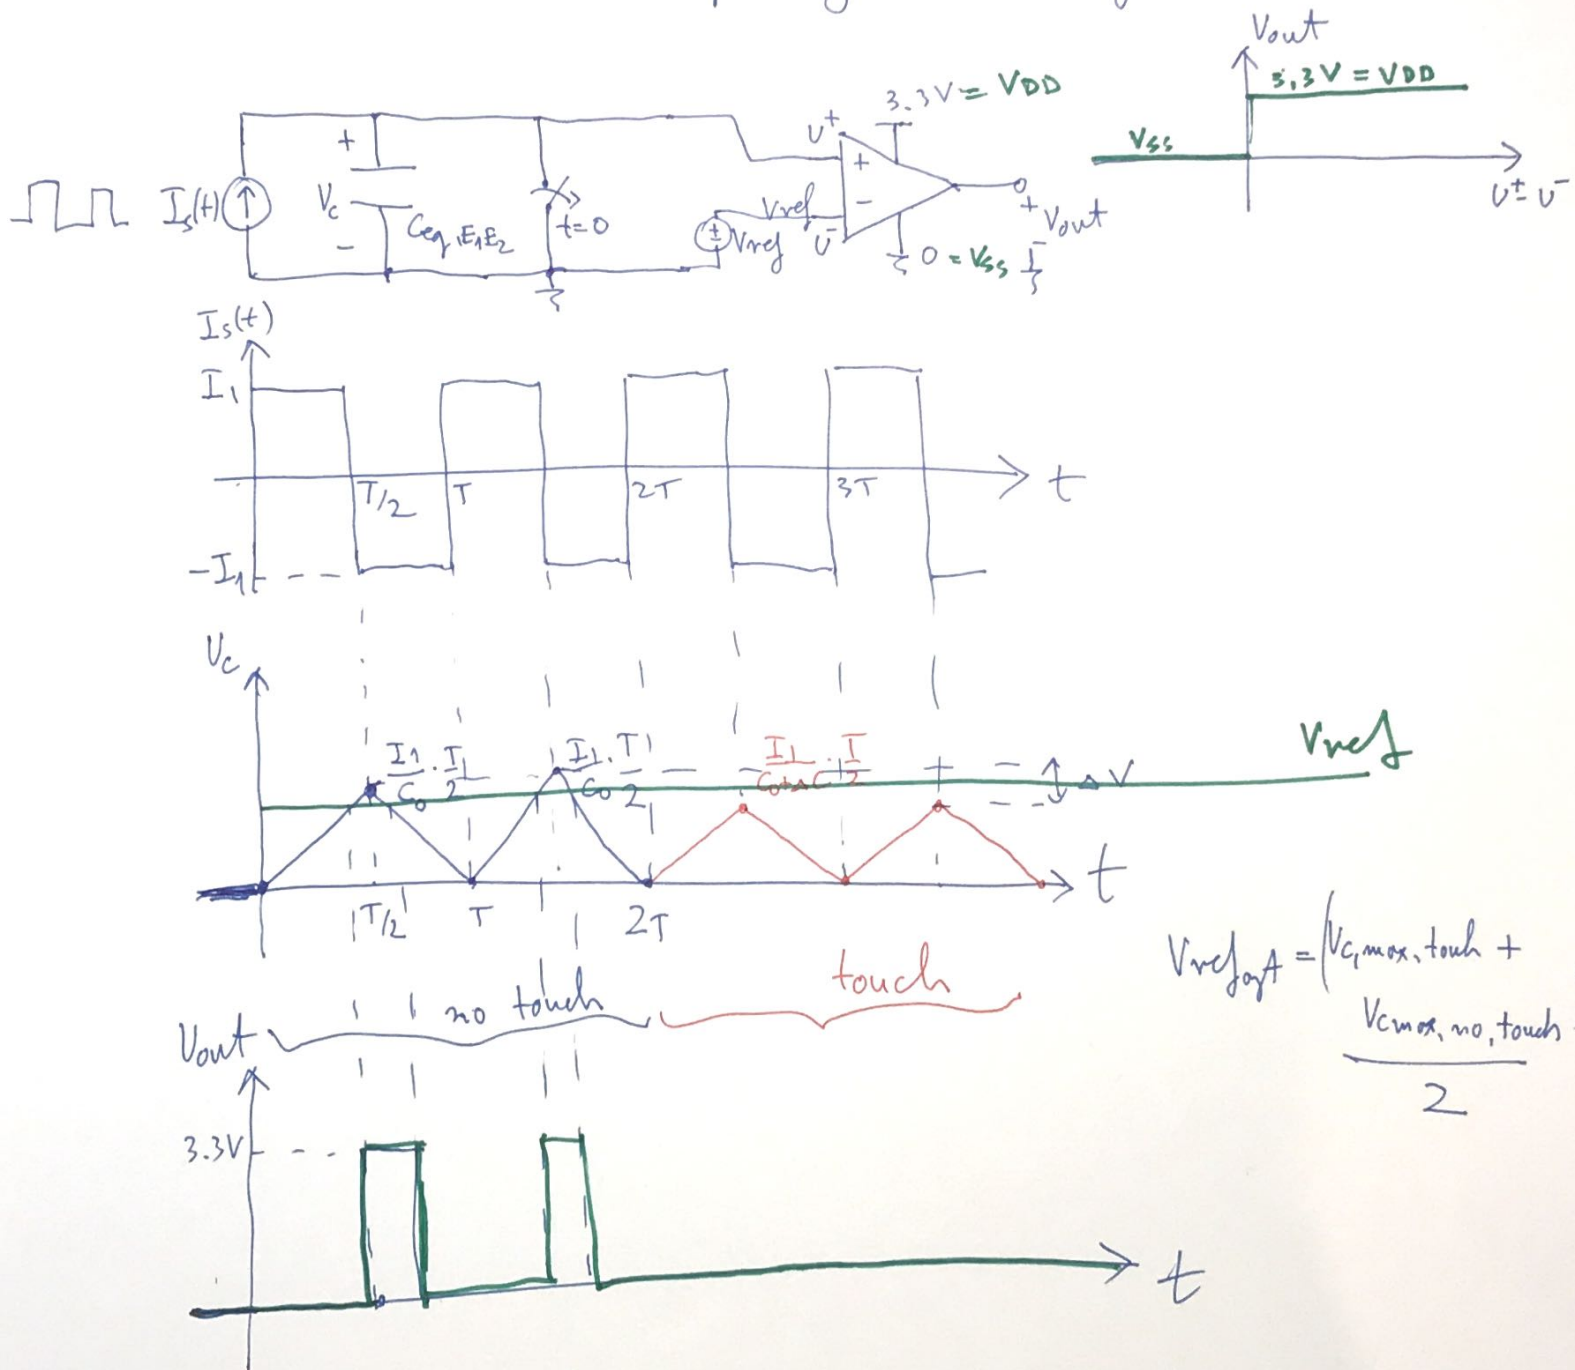 Vout
3.3V = VDD
5,3V = VDD
Vss
U⁺-U⁻
Is(t)
+
Vc
-
Ceq,E1E2
t=0
U⁺
+
Vref
-
U⁻
±
Vref
0 = Vss
+
Vout
-
Is(t)
I1
T/2
T
2T
3T
t
-I1
Vc
I1/C0 · T/2
I1/C0 · T/2
I1/C0+ΔC · T/2
ΔV
Vref
t
T/2
T
2T
no touch
touch
Vref,opt = (Vc,max,touh +
Vcmax,no,touch
2
Vout
3.3V
t